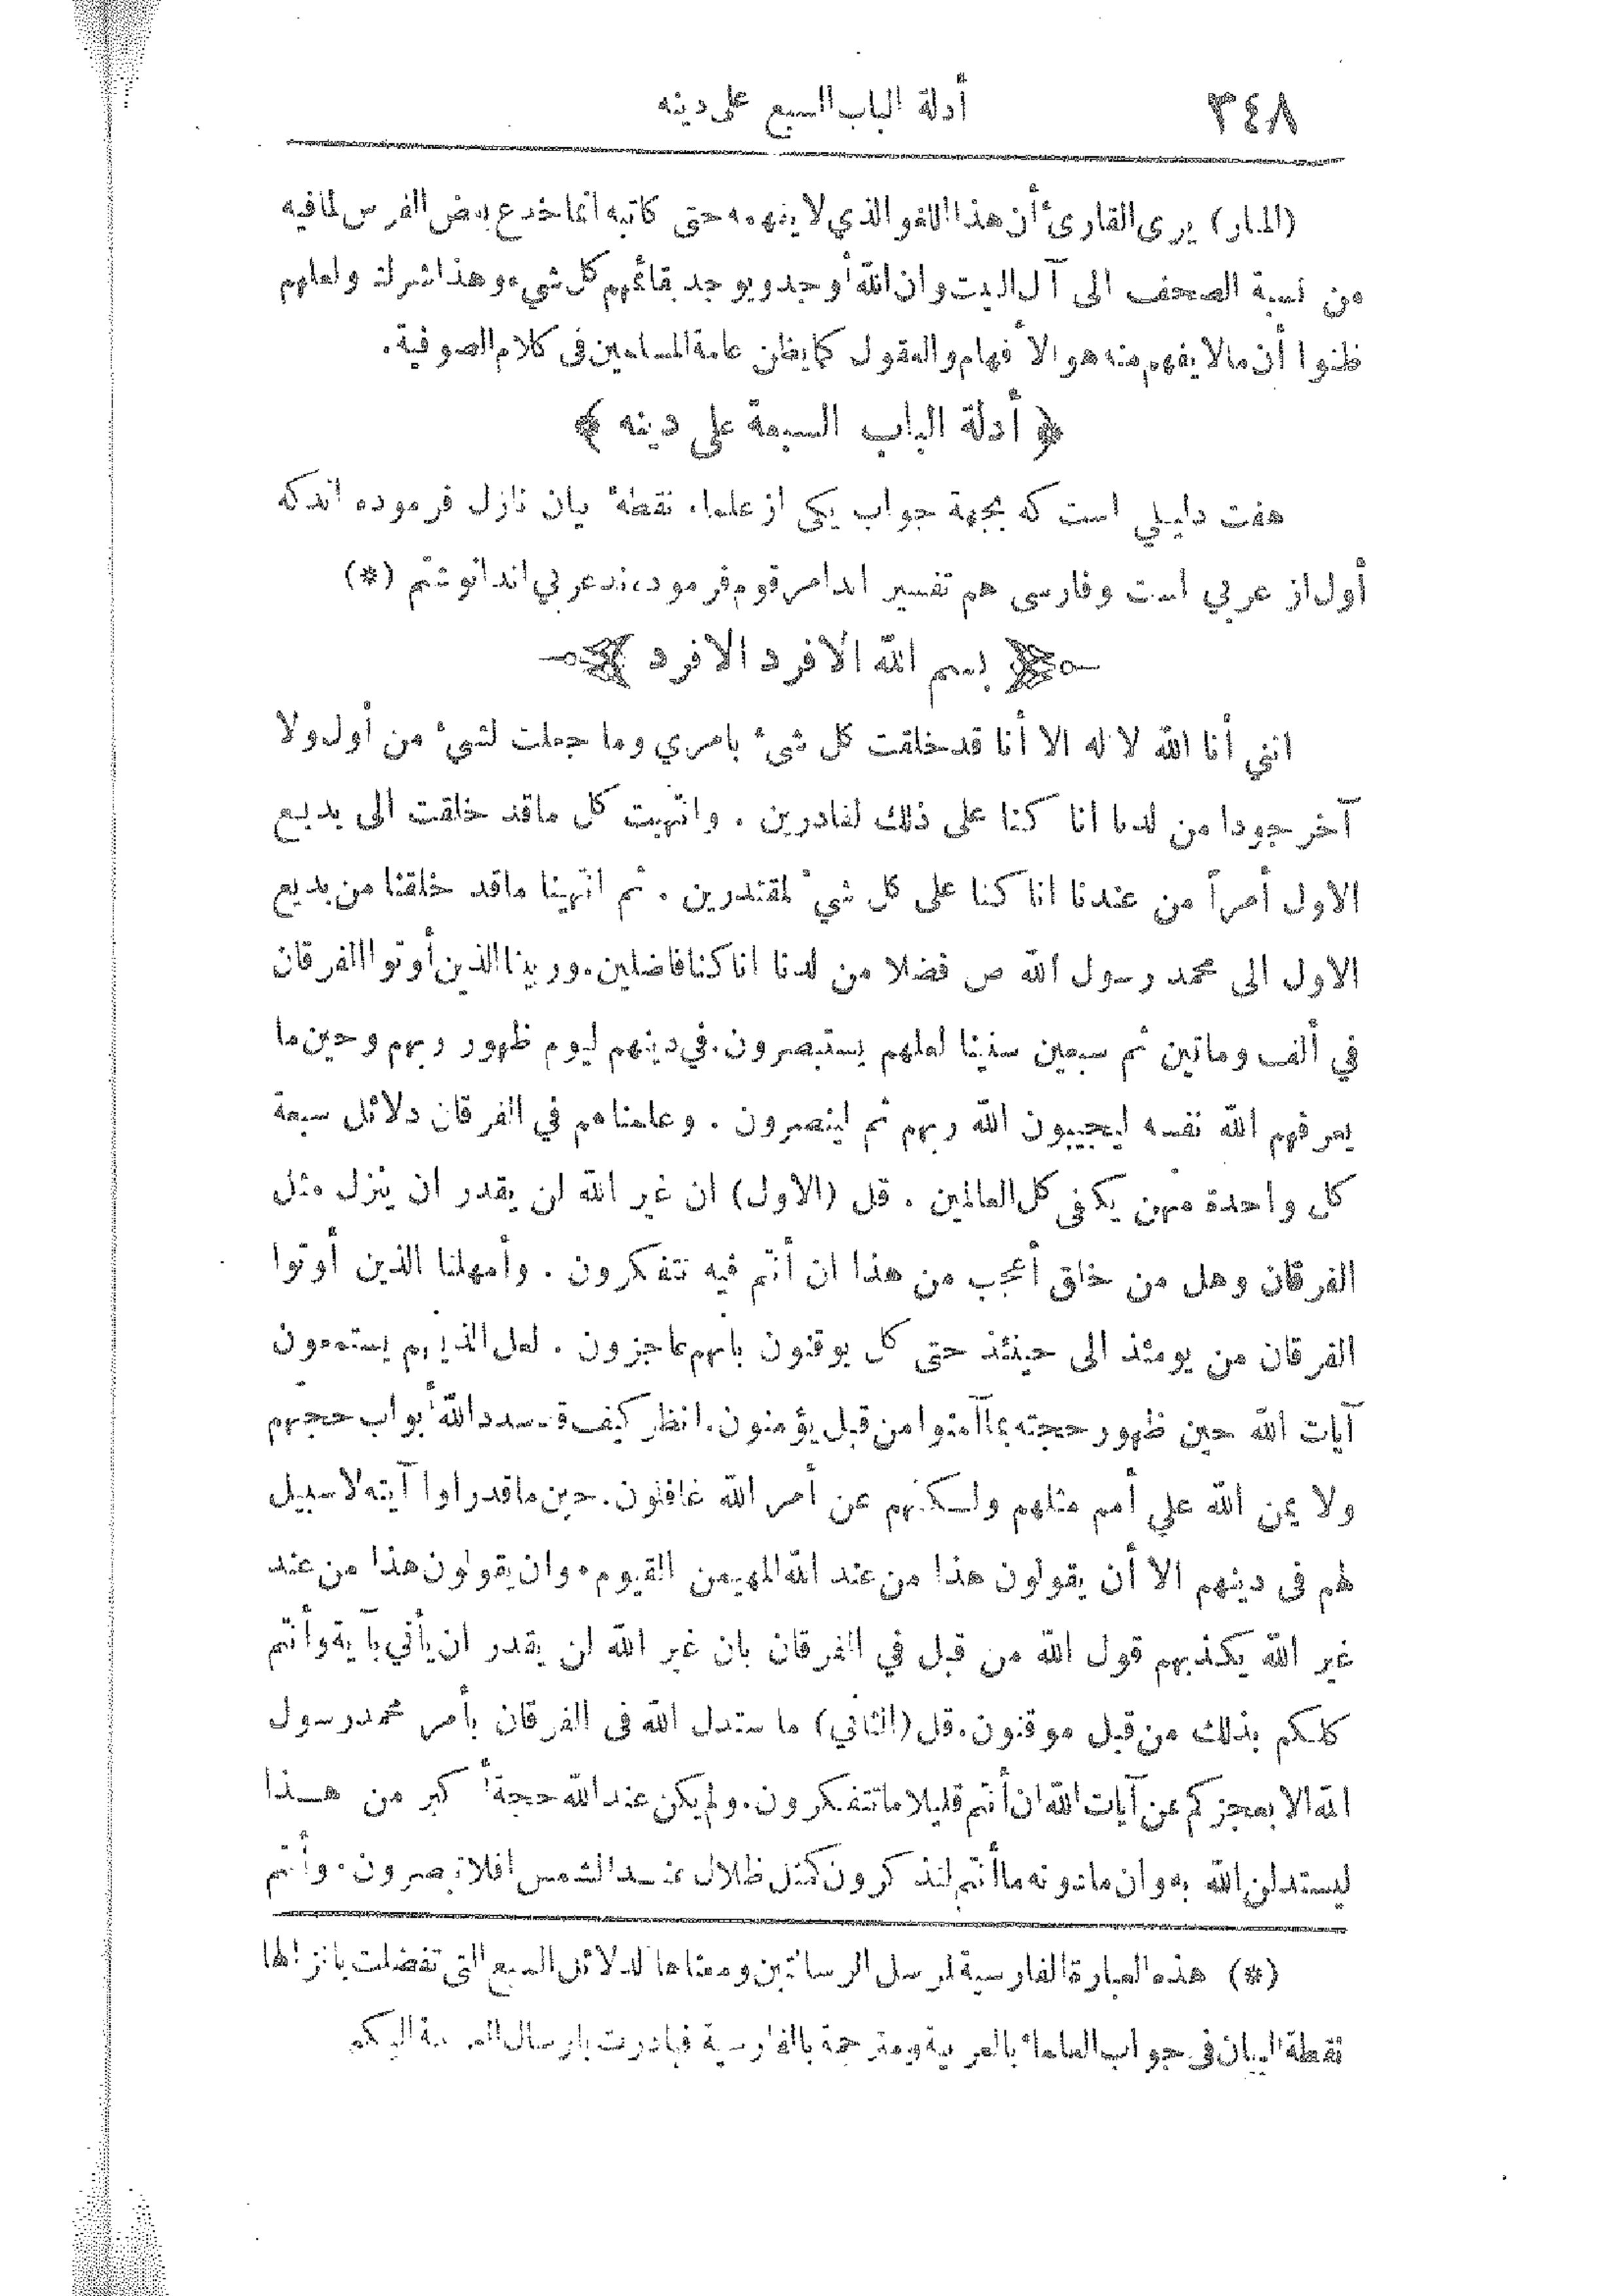 ٣٤٨
أدلة الباب السبع على دينه
(المنار) يرى القارئ أن هذا اللغو الذي لا يفهمه حتى كاتبه انما خدع بعض الفرس لما فيه
من نسبة الصحف الى آل البيت وان الله أوجد ويوجد بقائمهم كل شيء وهذا شرك ولعلهم
ظنوا أن مالا يفهم منه هو الأفهام والعقول كما يظن عامة المسلمين فى كلام الصوفية.
﴿ أدلة الباب السبعة على دينه ﴾
هفت دليلي است كه بجهة جواب يكى از علماء نقطهٔ بيان نازل فرموده اند كه
أول از عربي است وفارسى هم تفسير قوم فرمودند عربي اند انوشتم (*)
بسم الله الافرد الافرد
انني أنا الله لا اله الا أنا قد خلقت كل شيء بامري وما جعلت لشيء من أول ولا
آخر جودا من لدنا انا كنا على ذلك لقادرين . وانتهيت كل ماقد خلقت الى بديع
الاول أمراً من عندنا انا كنا على كل شيء لمقتدرين . ثم انتهينا ماقد خلقنا من بديع
الاول الى محمد رسول الله ص فضلا من لدنا انا كنا فاضلين. وربينا الذين أوتوا الفرقان
في ألف وماتين ثم سبعين سنينا لعلهم يستبصرون. في دينهم ليوم ظهور ربهم وحين ما
يعرفهم الله نفسه ليجيبون الله ربهم ثم لينصرون . وعلمناهم في الفرقان دلائل سبعة
كل واحدة منهن يكفى كل العالمين . قل (الاول) ان غير الله لن يقدر ان ينزل مثل
الفرقان وهل من خلق أعجب من هذا ان أنتم فيه تتفكرون . وأمهلنا الذين أوتوا
الفرقان من يومئذ الى حينئذ حتى كل يوقنون بانهم عاجزون . لعل الذينهم يستمعون
آيات الله حين ظهور حجته بما آمنوا من قبل يؤمنون. انظر كيف قد سدد الله أبواب حججهم
ولا يمن الله على أمم مثلهم ولكنهم عن أمر الله غافلون. حين ماقدراوا آيته لا سبيل
لهم فى دينهم الا أن يقولون هذا من عند الله المهيمن القيوم. وان يقولون هذا من عند
غير الله يكذبهم قول الله من قبل في الفرقان بان غير الله لن يقدر ان يأتي بآية وأنتم
كلكم بذلك من قبل موقنون. قل (الثاني) ما ستدل الله فى الفرقان بأمر محمد رسول
الله الا بعجزكم عن آيات الله ان أنتم قليلا ما تتفكرون. ولم يكن عند الله حجة أكبر من هذا
ليستدلن الله به وان مادونه ما أنتم لتذكرون كمثل ظلال عند الشمس افلا تبصرون. وأنتم
(*) هذه العبارة الفارسية لمرسل الرسالتين ومعناها الدلائل السبع التى تفضلت بانزالها
نقطة البيان فى جواب العلماء بالعربية ومترجمة بالفارسية فبادرت بارسال العربية اليكم